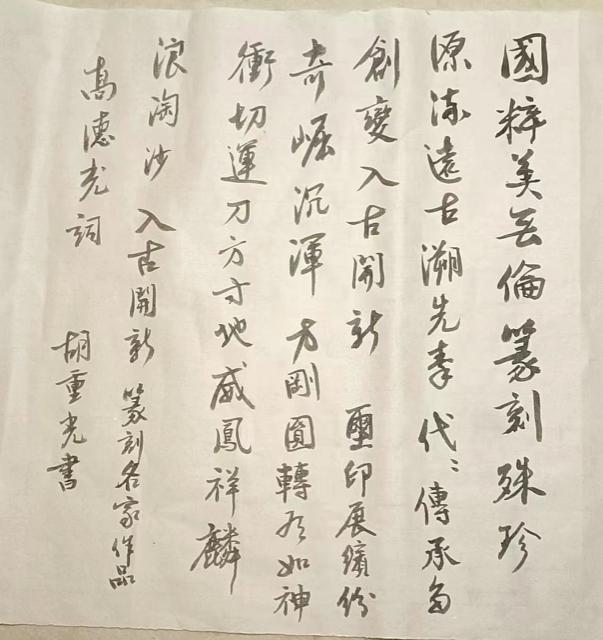 國粹美无倫篆刻殊珍
源流遠古溯先秦代々傳承多
創變入古開新 璽印展繽紛
奇崛沉渾 方剛圓轉有如神
衝切運刀方寸地威鳳祥麟
浪淘沙 入古開新 篆刻名家作品
高德光詞 胡重光書